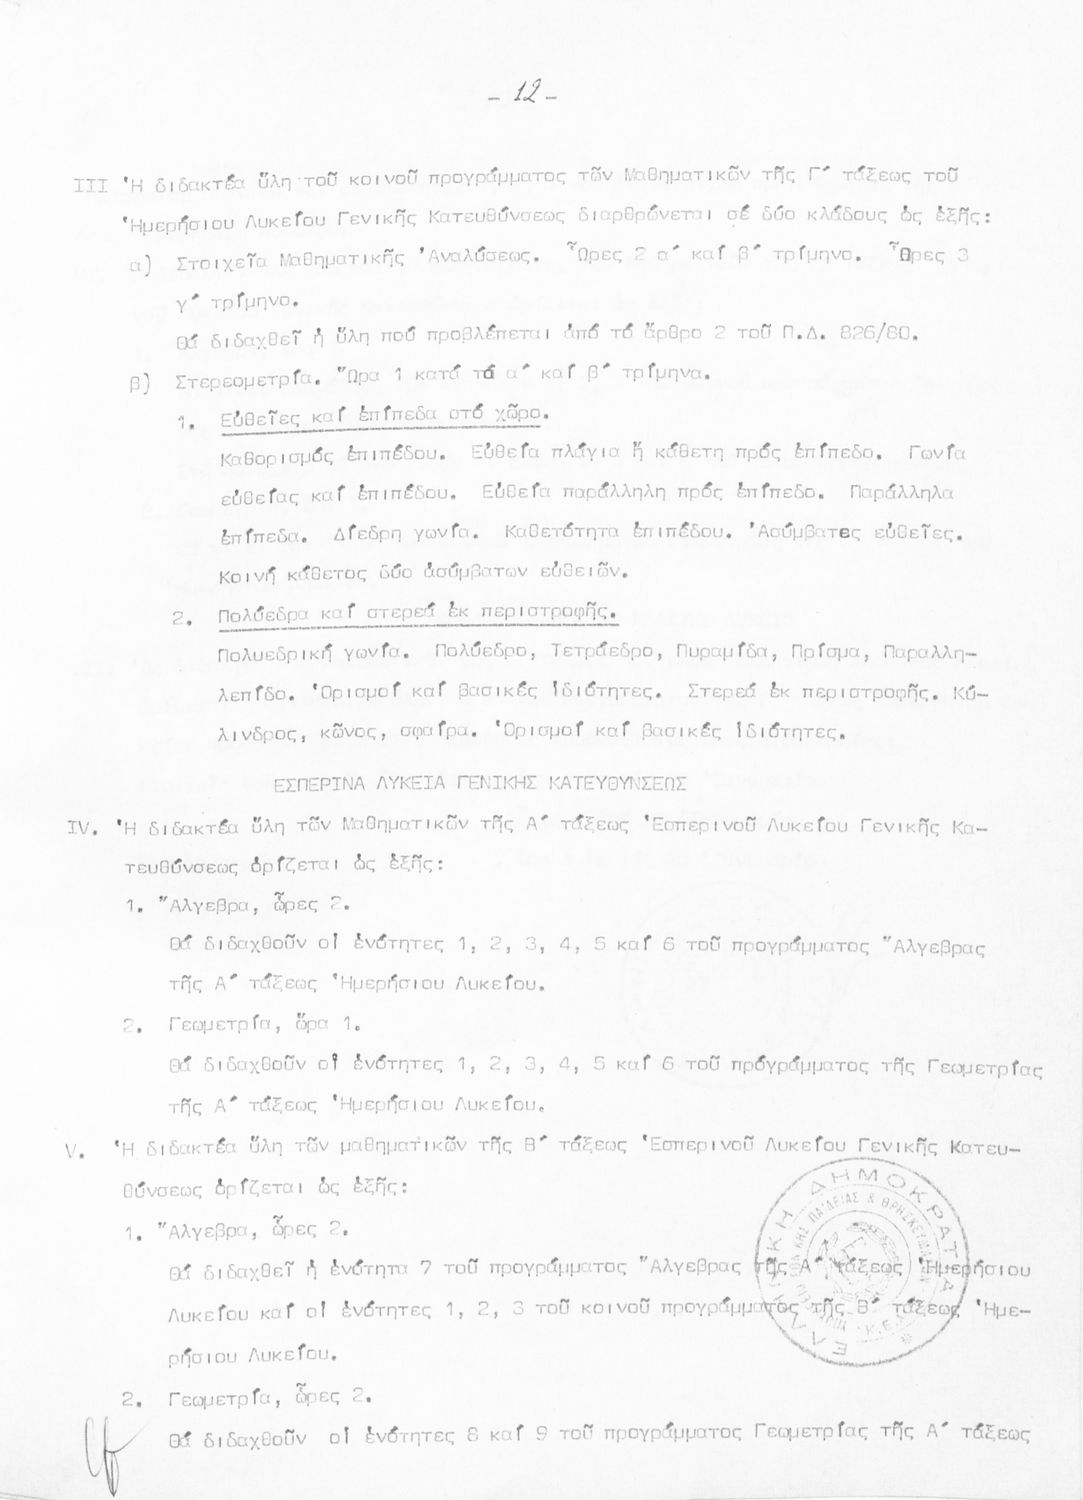 - 12 -
III Ἡ διδακτέα ὕλη τοῦ κοινοῦ προγράμματος τῶν Μαθηματικῶν τῆς Γ΄ τάξεως τοῦ
Ἡμερήσιου Λυκείου Γενικῆς Κατευθύνσεως διαρθρώνεται σέ δύο κλάδους ὡς ἑξῆς:
α) Στοιχεῖα Μαθηματικῆς Ἀναλύσεως. Ὧρες 2 α΄ καί β΄ τρίμηνο. Ὧρες 3
γ΄ τρίμηνο.
Θά διδαχθεῖ ἡ ὕλη πού προβλέπεται ἀπό τό ἄρθρο 2 τοῦ Π.Δ. 826/80.
β) Στερεομετρία. Ὥρα 1 κατά τά α΄ καί β΄ τρίμηνα.
1. Εὐθεῖες καί ἐπίπεδα στό χῶρο.
Καθορισμός ἐπιπέδου. Εὐθεῖα πλάγια ἤ κάθετη πρός ἐπίπεδο. Γωνία
εὐθείας καί ἐπιπέδου. Εὐθεῖα παράλληλη πρός ἐπίπεδο. Παράλληλα
ἐπίπεδα. Δίεδρη γωνία. Καθετότητα ἐπιπέδου. Ἀσύμβατες εὐθεῖες.
Κοινή κάθετος δύο ἀσύμβατων εὐθειῶν.
2. Πολύεδρα καί στερεά ἐκ περιστροφῆς.
Πολυεδρική γωνία. Πολύεδρο, Τετράεδρο, Πυραμίδα, Πρίσμα, Παραλλη-
λεπίδο. Ὁρισμοί καί βασικές ἰδιότητες. Στερεά ἐκ περιστροφῆς. Κύ-
λινδρος, κῶνος, σφαίρα. Ὁρισμοί καί βασικές ἰδιότητες.
ΕΣΠΕΡΙΝΑ ΛΥΚΕΙΑ ΓΕΝΙΚΗΣ ΚΑΤΕΥΘΥΝΣΕΩΣ
IV. Ἡ διδακτέα ὕλη τῶν Μαθηματικῶν τῆς Α΄ τάξεως Ἑσπερινοῦ Λυκείου Γενικῆς Κα-
τευθύνσεως ὁρίζεται ὡς ἑξῆς:
1. Ἄλγεβρα, ὧρες 2.
Θά διδαχθοῦν οἱ ἑνότητες 1, 2, 3, 4, 5 καί 6 τοῦ προγράμματος Ἄλγεβρας
τῆς Α΄ τάξεως Ἡμερήσιου Λυκείου.
2. Γεωμετρία, ὥρα 1.
Θά διδαχθοῦν οἱ ἑνότητες 1, 2, 3, 4, 5 καί 6 τοῦ πρόγράμματος τῆς Γεωμετρίας
τῆς Α΄ τάξεως Ἡμερήσιου Λυκείου.
V. Ἡ διδακτέα ὕλη τῶν μαθηματικῶν τῆς Β΄ τάξεως Ἑσπερινοῦ Λυκείου Γενικῆς Κατευ-
θύνσεως ὁρίζεται ὡς ἑξῆς:
1. Ἄλγεβρα, ὧρες 2.
Θά διδαχθεῖ ἡ ἑνότητα 7 τοῦ προγράμματος Ἄλγεβρας τῆς Α΄ τάξεως Ἡμερήσιου
Λυκείου καί οἱ ἑνότητες 1, 2, 3 τοῦ κοινοῦ προγράμματος τῆς Β΄ τάξεως Ἡμε-
ρήσιου Λυκείου.
2. Γεωμετρία, ὧρες 2.
Θά διδαχθοῦν οἱ ἑνότητες 8 καί 9 τοῦ προγράμματος Γεωμετρίας τῆς Α΄ τάξεως
ΕΛΛΗΝΙΚΗ ΔΗΜΟΚΡΑΤΙΑ